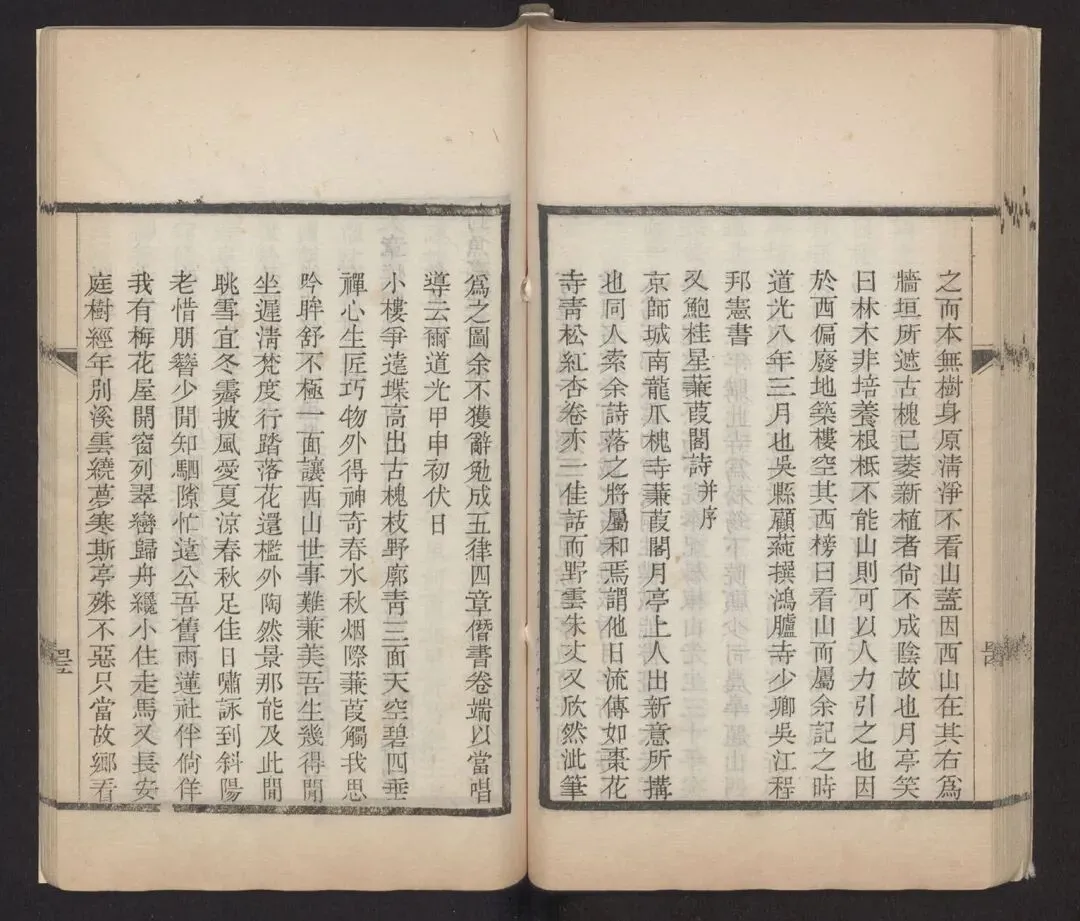 之而本無樹身原清淨不看山蓋因西山在其右爲
牆垣所遮古槐已萎新植者尙不成陰故也月亭笑
曰林木非培養根柢不能山則可以人力引之也因
於西偏廢地築樓空其西榜曰看山而屬余記之時
道光八年三月也吳縣顧蒓撰鴻臚寺少卿吳江程
邦憲書
又鮑桂星蒹葭閣詩并序
京師城南龍爪槐寺蒹葭閣月亭上人出新意所搆
也同人索余詩落之將屬和焉謂他日流傳如棗花
寺靑松紅杏卷亦一佳話而野雲朱丈又欣然泚筆
爲之圖余不獲辭勉成五律四章僭書卷端以當唱
導云爾道光甲申初伏日
小樓爭遠堞高出古槐枝野廓靑三面天空碧四垂
禪心生匠巧物外得神奇春水秋烟際蒹葭觸我思
吟眸舒不極一面讓西山世事難兼美吾生幾得閒
坐遲淸梵度行踏落花還檻外陶然景那能及此間
眺雪宜冬霽披風愛夏涼春秋足佳日嘯詠到斜陽
老惜朋簪少閒知駟隙忙遠公吾舊雨蓮社伴倘佯
我有梅花屋開窗列翠巒歸舟纔小住走馬又長安
庭樹經年別溪雲繞夢寒斯亭殊不惡只當故鄉看